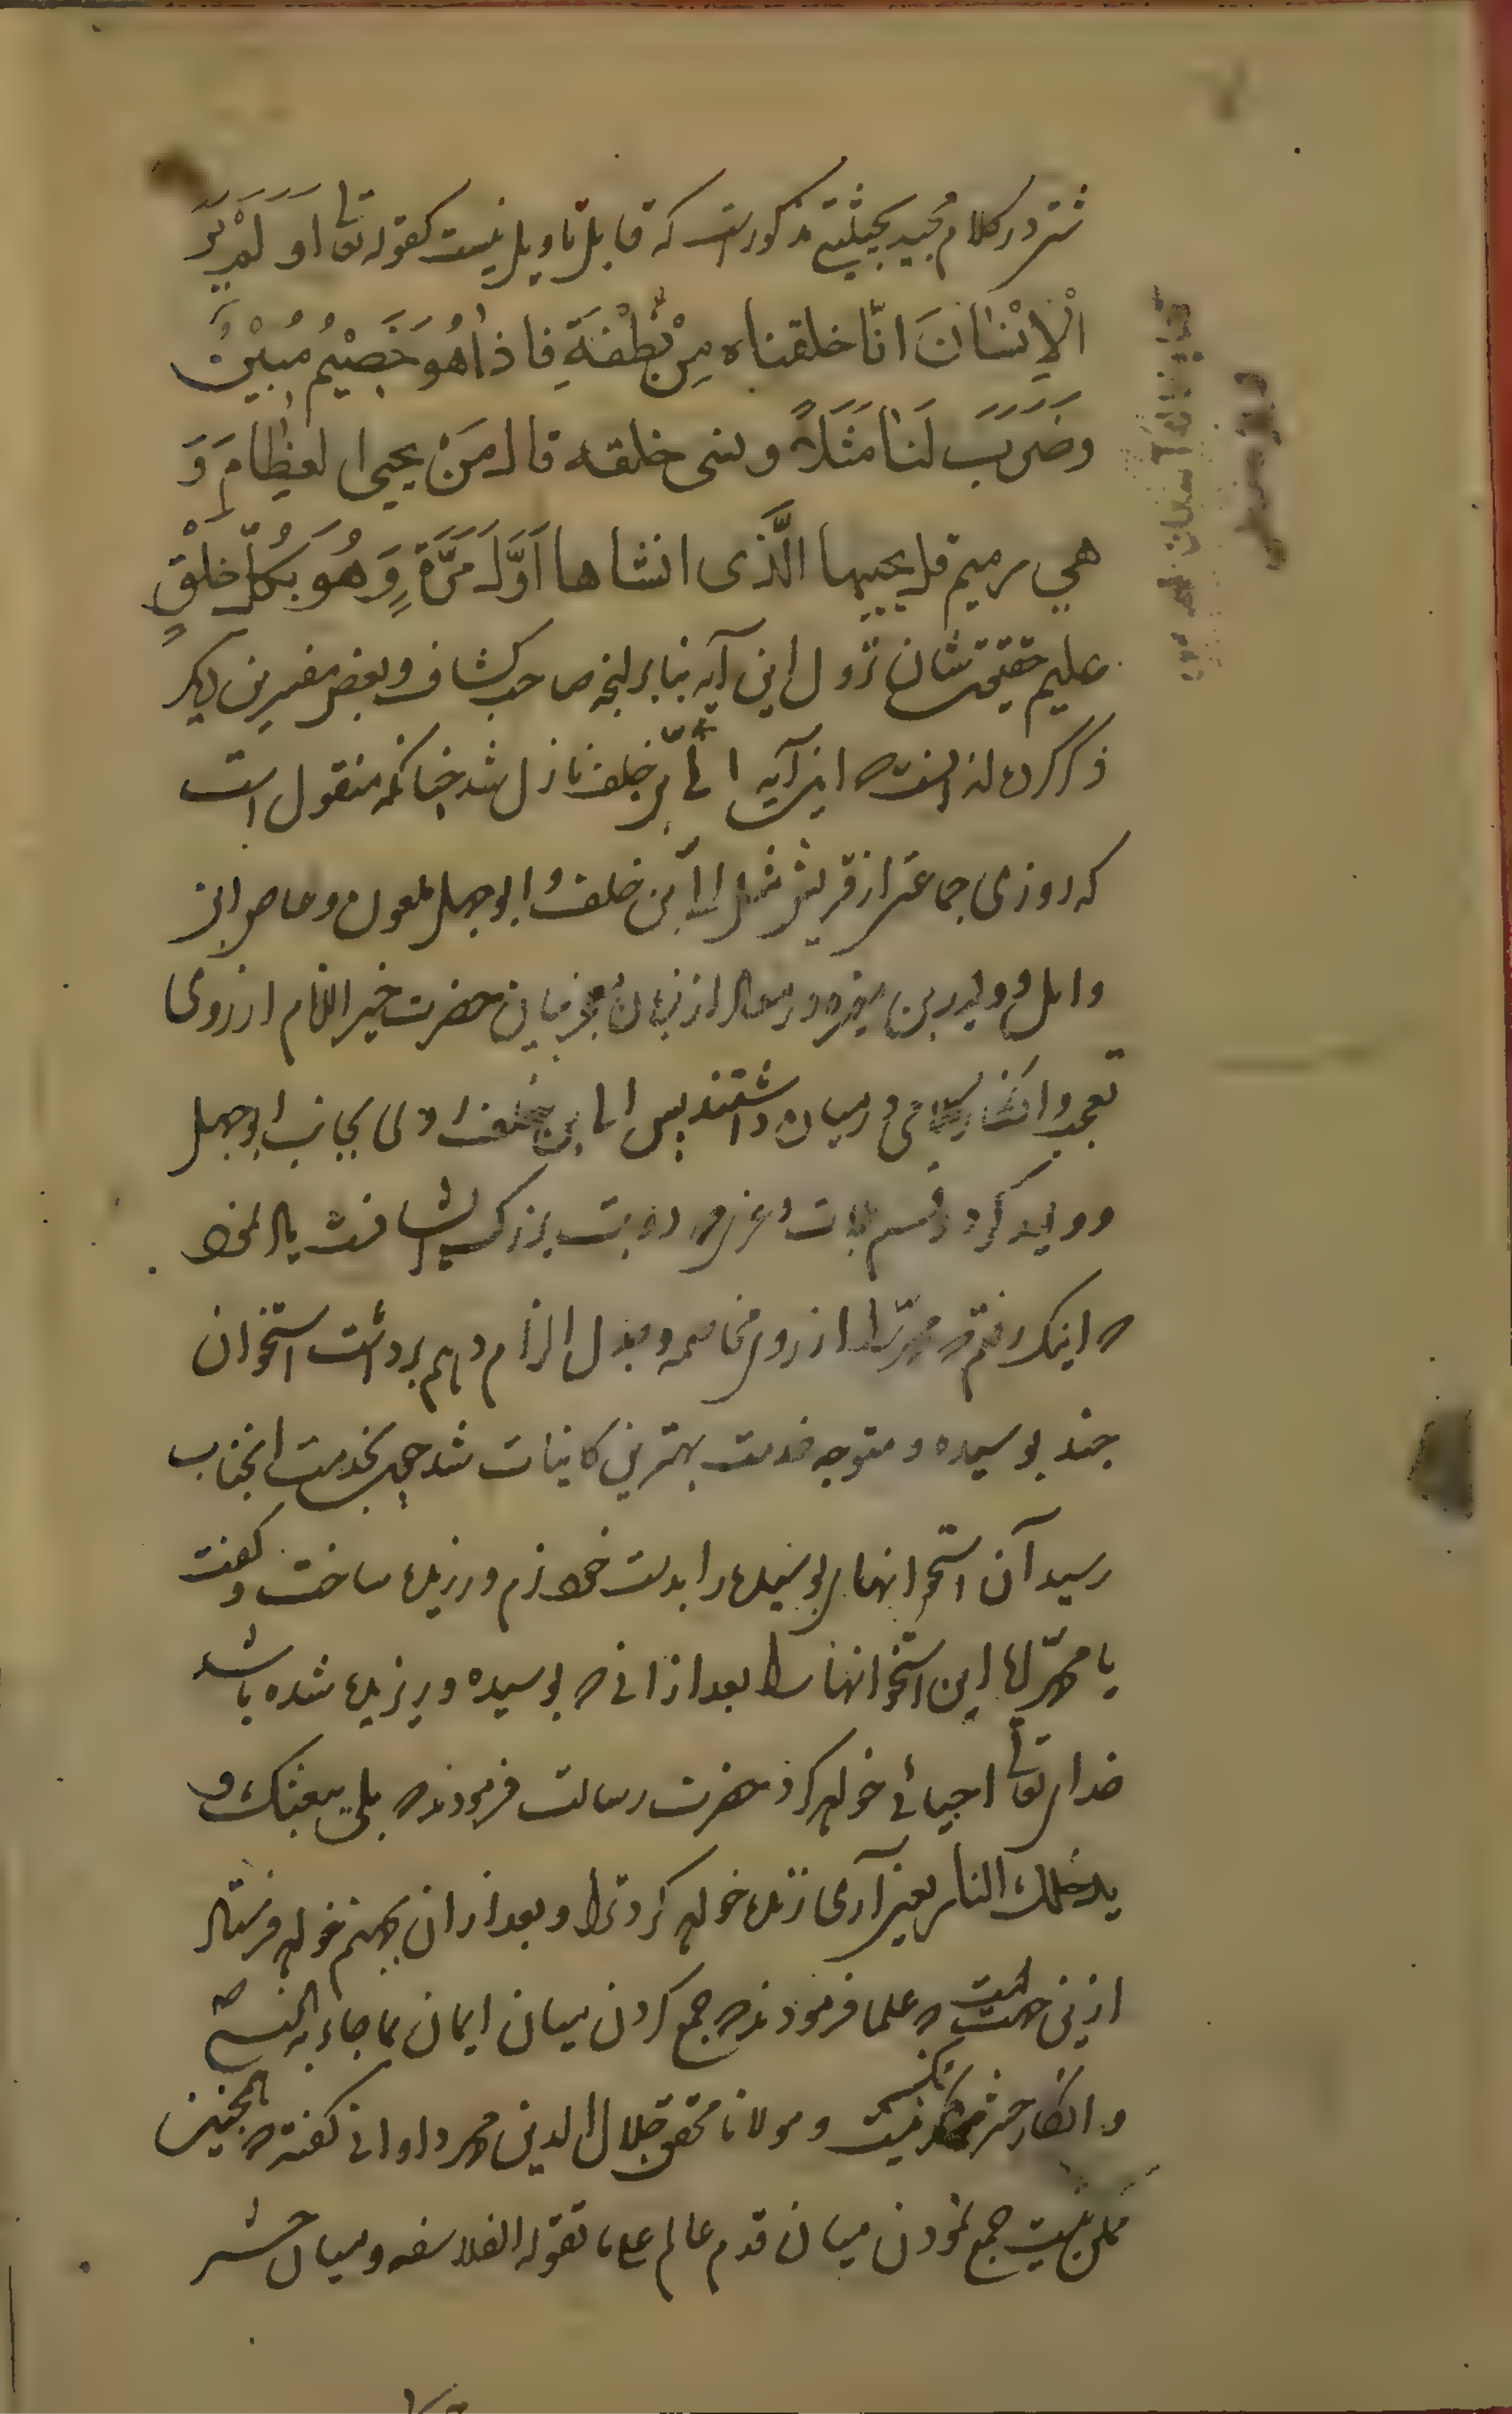 شتر در کلام مجید بحیثیتی مذکور است که قابل تاویل نیست کقوله تعا اَوَلَمْ یَرَ
الْاِنْسَانَ انّا خلقناه مِنْ نُطْفَةٍ فاذا هُوَ خَصِیْمٌ مُبِیْنٌ
وضَرَبَ لَنَا مَثَلًا ونسی خلقه قال مَنْ یحیی العِظَامَ وَ
هی رمیم قل یحییها الَّذی انشاها اَوَّلَ مَرَّةٍ وَهُوَ بِکُلِّ خَلْقٍ
علیم حقیقت شان نزول این آیه بنابر انچه صاحب کشاف و بعض مفسرین دیکر
ذکر کرده اند انست که این آیه ابی بن خلف نازل شد چنانکه منقول است
که روزی جماعتی از قریش مثل ابی بن خلف و ابوجهل ملعون و عاص ابن
وائل و ولید بن مغیره در سوال از زبان معجز بیان حضرت خیر الانام از روی
تعجب و انکار کلامی در میان داشتند پس ابی بن خلف روی بجانب ابوجهل
و ولید کرد و قسم بلات و عزی که دو بت بزرک ایشانست یاد نمود
که اینک رفتم که محمد را از روی مخاصمه و جدل الزام دهم برداشت استخوان
چند بوسیده و متوجه خدمت بهترین کاینات شد چون بخدمت انجناب
رسید آن استخوانهای بوسیده را بدست خود نرم و ریزیده ساخت و کفت
یا محمد ایا این استخوانها را بعد از انی که بوسیده و ریزیده شده باشد
خدای تعالی احیائی خواهد کرد حضرت رسالت فرمودند که بلی یبعثک و
یدخلک النار یعنی آری زنده خواهد کرد ترا و بعد از ان بجهنم خواهد فرستاد
ازینی جهت است که علما فرمودند که جمع کردن میان ایمان بما جاء به النبی ص
و انکار حشر ممکن نیست و مولانا محقق جلال الدین محمد دوانی کفته که همچنین
ممکن نیست جمع نمودن میان قدم عالم علی ما تقوله الفلاسفه و میان حشر